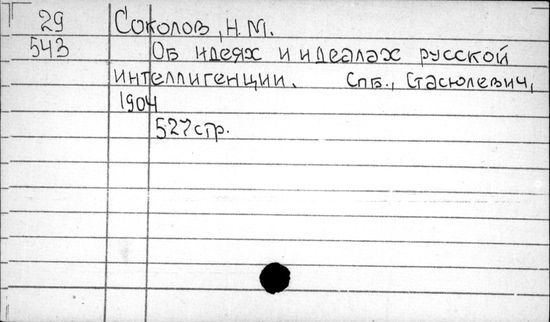 29 Соколов, Н.М.
543 Об идеях и идеалах русской
интеллигенции. Спб., Стасюлевич,
1904
527 стр.